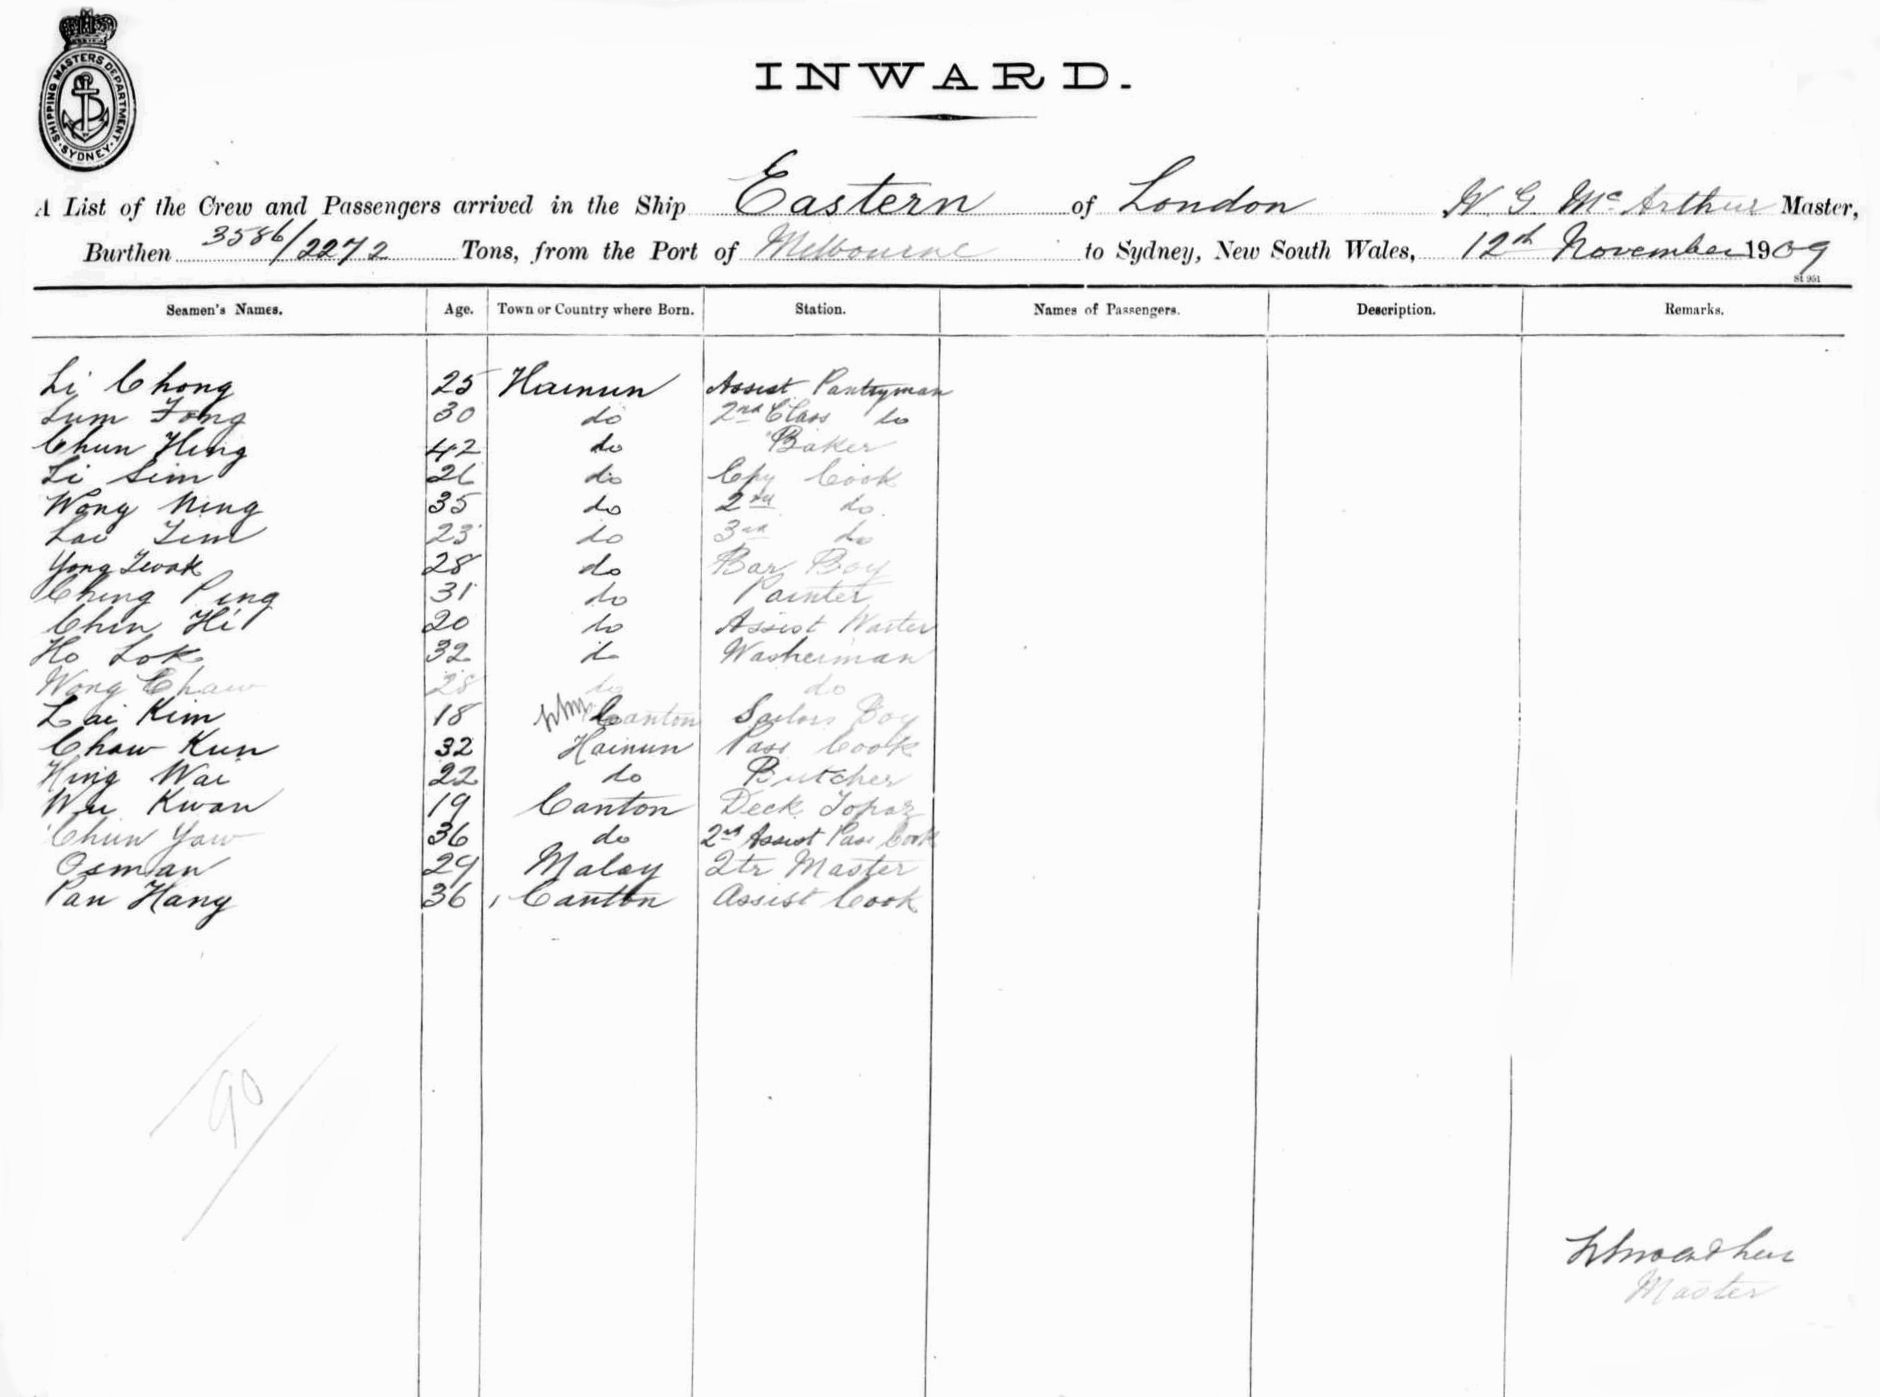 SHIPPING MASTERS DEPARTMENT
SYDNEY
INWARD.
A List of the Crew and Passengers arrived in the Ship Eastern of London W. G. McArthur Master,
Burthen 3586/2272 Tons, from the Port of Melbourne to Sydney, New South Wales, 12th November 1909
St 951
Seamen's Names. Age. Town or Country where Born. Station. Names of Passengers. Description. Remarks.
Li Chong 25 Hainun Assist Pantryman
Lum Fong 30 do 2nd Class do
Chun Hing 42 do Baker
Li Sim 26 do Cpy Cook
Wong Ning 35 do 2nd do
Lai Tim 23 do 3rd do
Yong Kwok 28 do Bar Boy
Ching Ping 31 do Painter
Chin Hi 20 do Assist Waiter
Ho Lok 32 do Washerman
Wong Chaw 28 do do
Lai Kim 18 Canton Sailors Boy
Chaw Kun 32 Hainun Pass Cook
Hing Wai 22 do Butcher
Wu Kwan 19 Canton Deck Topaz
Chun Yaw 36 do 2nd Assist Pass Cook
Osman 29 Malay Qtr Master
Pan Hang 36 Canton Assist Cook
90
Master